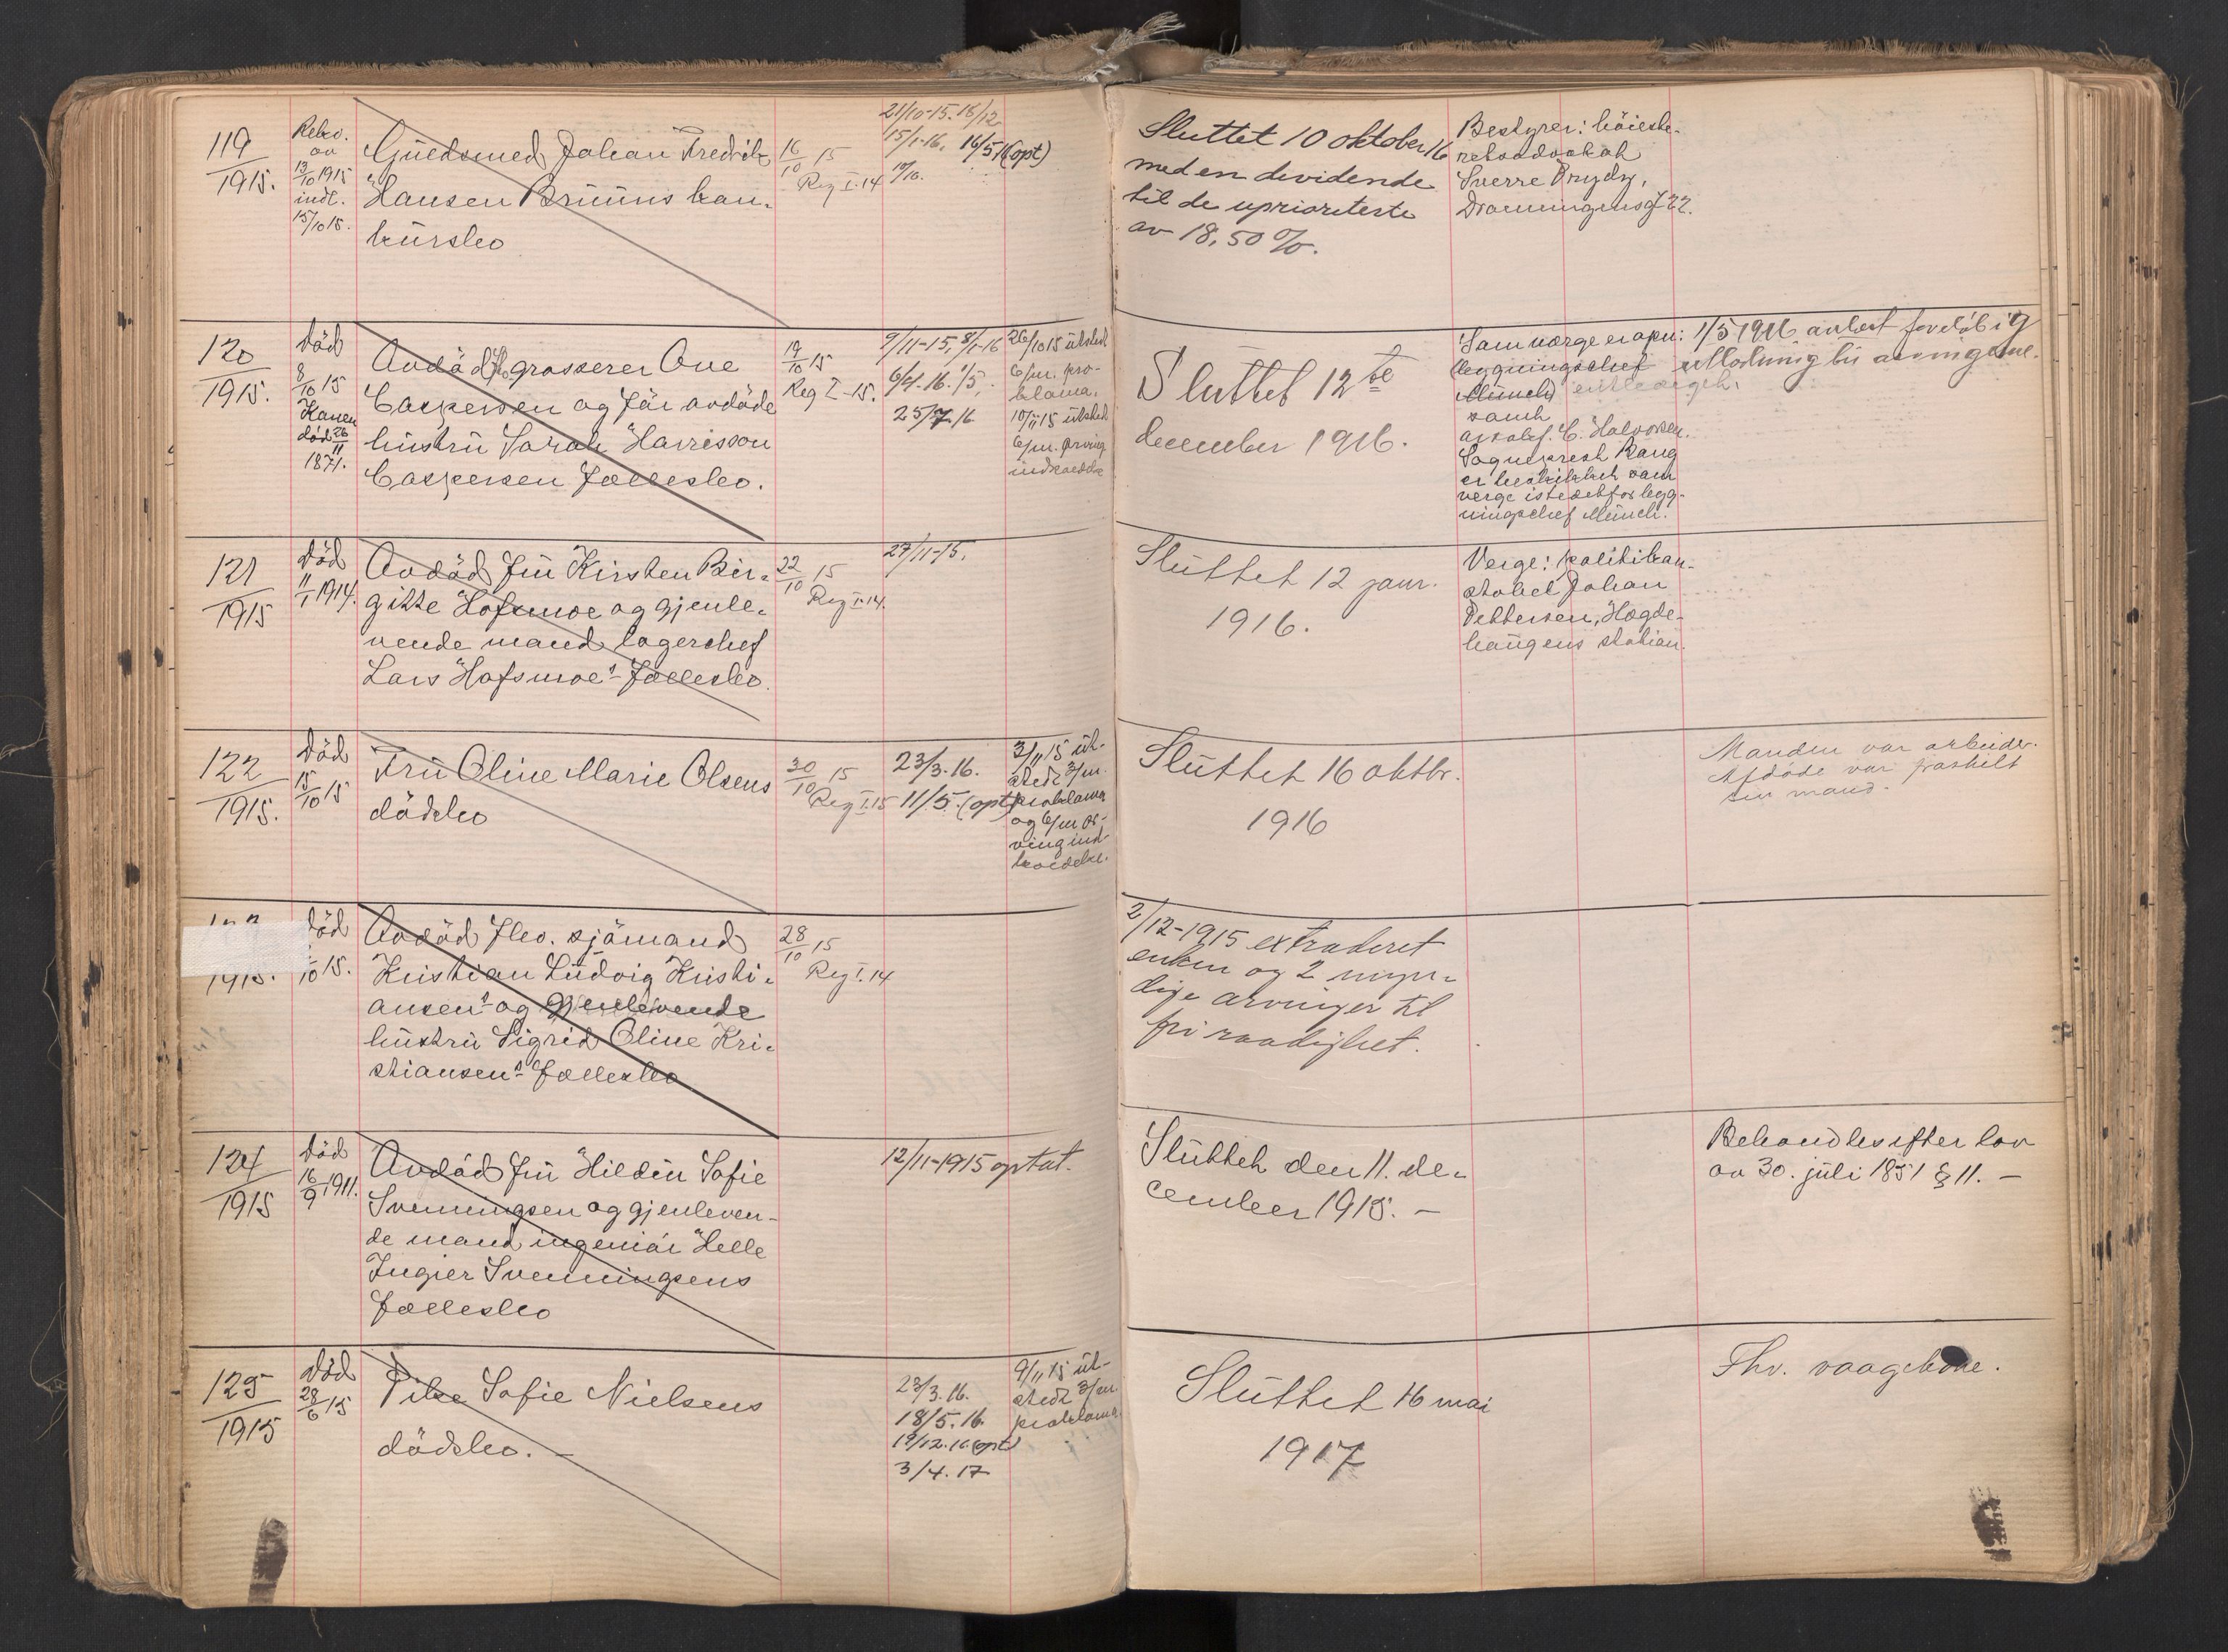 119
1915.
Rekv.
av
13/10 1915
indl.
15/10 15.
Guldsmed Johan Fredrik
Hansen Bruuns kon-
kursbo
16/10 15
Reg I.14
21/10-15. 16/12
15/1-16. 16/5 16 (opt)
Sluttet 10 oktober 16
med en dividende
til de uprioriterte
av 18,50 %.
Bestyrer: höieste-
retsadvokat
Sverre
Dronningensgt 22.
120
1915.
Död
8/10 15
Konen
död 26/11
1871.
Avdöd fhv. grosserer Ove
Caspersen og før avdöde
hustru Sarah Harrisson
Caspersen fællesbo.
19/10 15
Reg I-15.
9/11-15, 8/1-16
6/4.16. 9/5.
25/7.16
26/10 15 utstedt
6/m. pro-
klama.
10/11 15 utstedt
6/m. arving
indkaldelse
Sluttet 12te
december 1916.
Samværge er opn:
leggningschef
Münch
samt
C. Halvorsen.
Sogneprest Rang
er beskikket som
verge istedetfor legg-
ningschef Münch.
1/5 1916 avlæst foreløbig
utlodning til arvingerne.
121
1915
Död
11/1 1914.
Avdöd fru Kirsten Bir-
gitte Hofsmoe og gjenle-
vende mand lagerchef
Lars Hofsmoe's fællesbo.
22/10 15
Reg I.14.
27/11-15.
Sluttet 12 janr.
1916.
Verge: politikon-
stabel Johan
Pettersen, Hegde-
haugens station.
122
1915.
Död
15/10 15
Fru Oline Marie Olsens
dödsbo
30/10 15
Reg I.15
23/3.16.
11/5. (opt)
3/11 15 ut-
stedt 3/m.
proklama
og 6/m ar-
vingind-
kaldelse.
Sluttet 16 oktbr.
1916
Manden var arbeider.
Afdøde var fraskilt
sin mand.
1915.
Död
10 15.
Avdöd fhv. sjömand
Kristian Ludvig Kristi-
ansen's og gjenlevende
hustru Sigrid Oline Kri-
stiansen's fællesbo
28/10 15
Reg I.14
2/12-1915 extraderet
enken og 2 myn-
dige arvinger til
fri raadighet.
124
1915
Död
16/9 1911.
Avdöd fru Hildur Sofie
Svenningsen og gjenleven-
de mand ingeniör Helle
Ingier Svenningsens
fællesbo
12/11-1915 optat.
Sluttet den 11. de-
cember 1915. —
Behandles efter lov
av 30. juli 1851 § 11. —
125
1915
Död
28/6 15
Pike Sofie Nielsens
dödsbo. —
23/3.16.
18/5.16.
19/12.16 (opt)
3/4.17
9/11 15 ut-
stedt 3/m.
proklama.
Sluttet 16 mai
1917
Fhv. vaagekone.